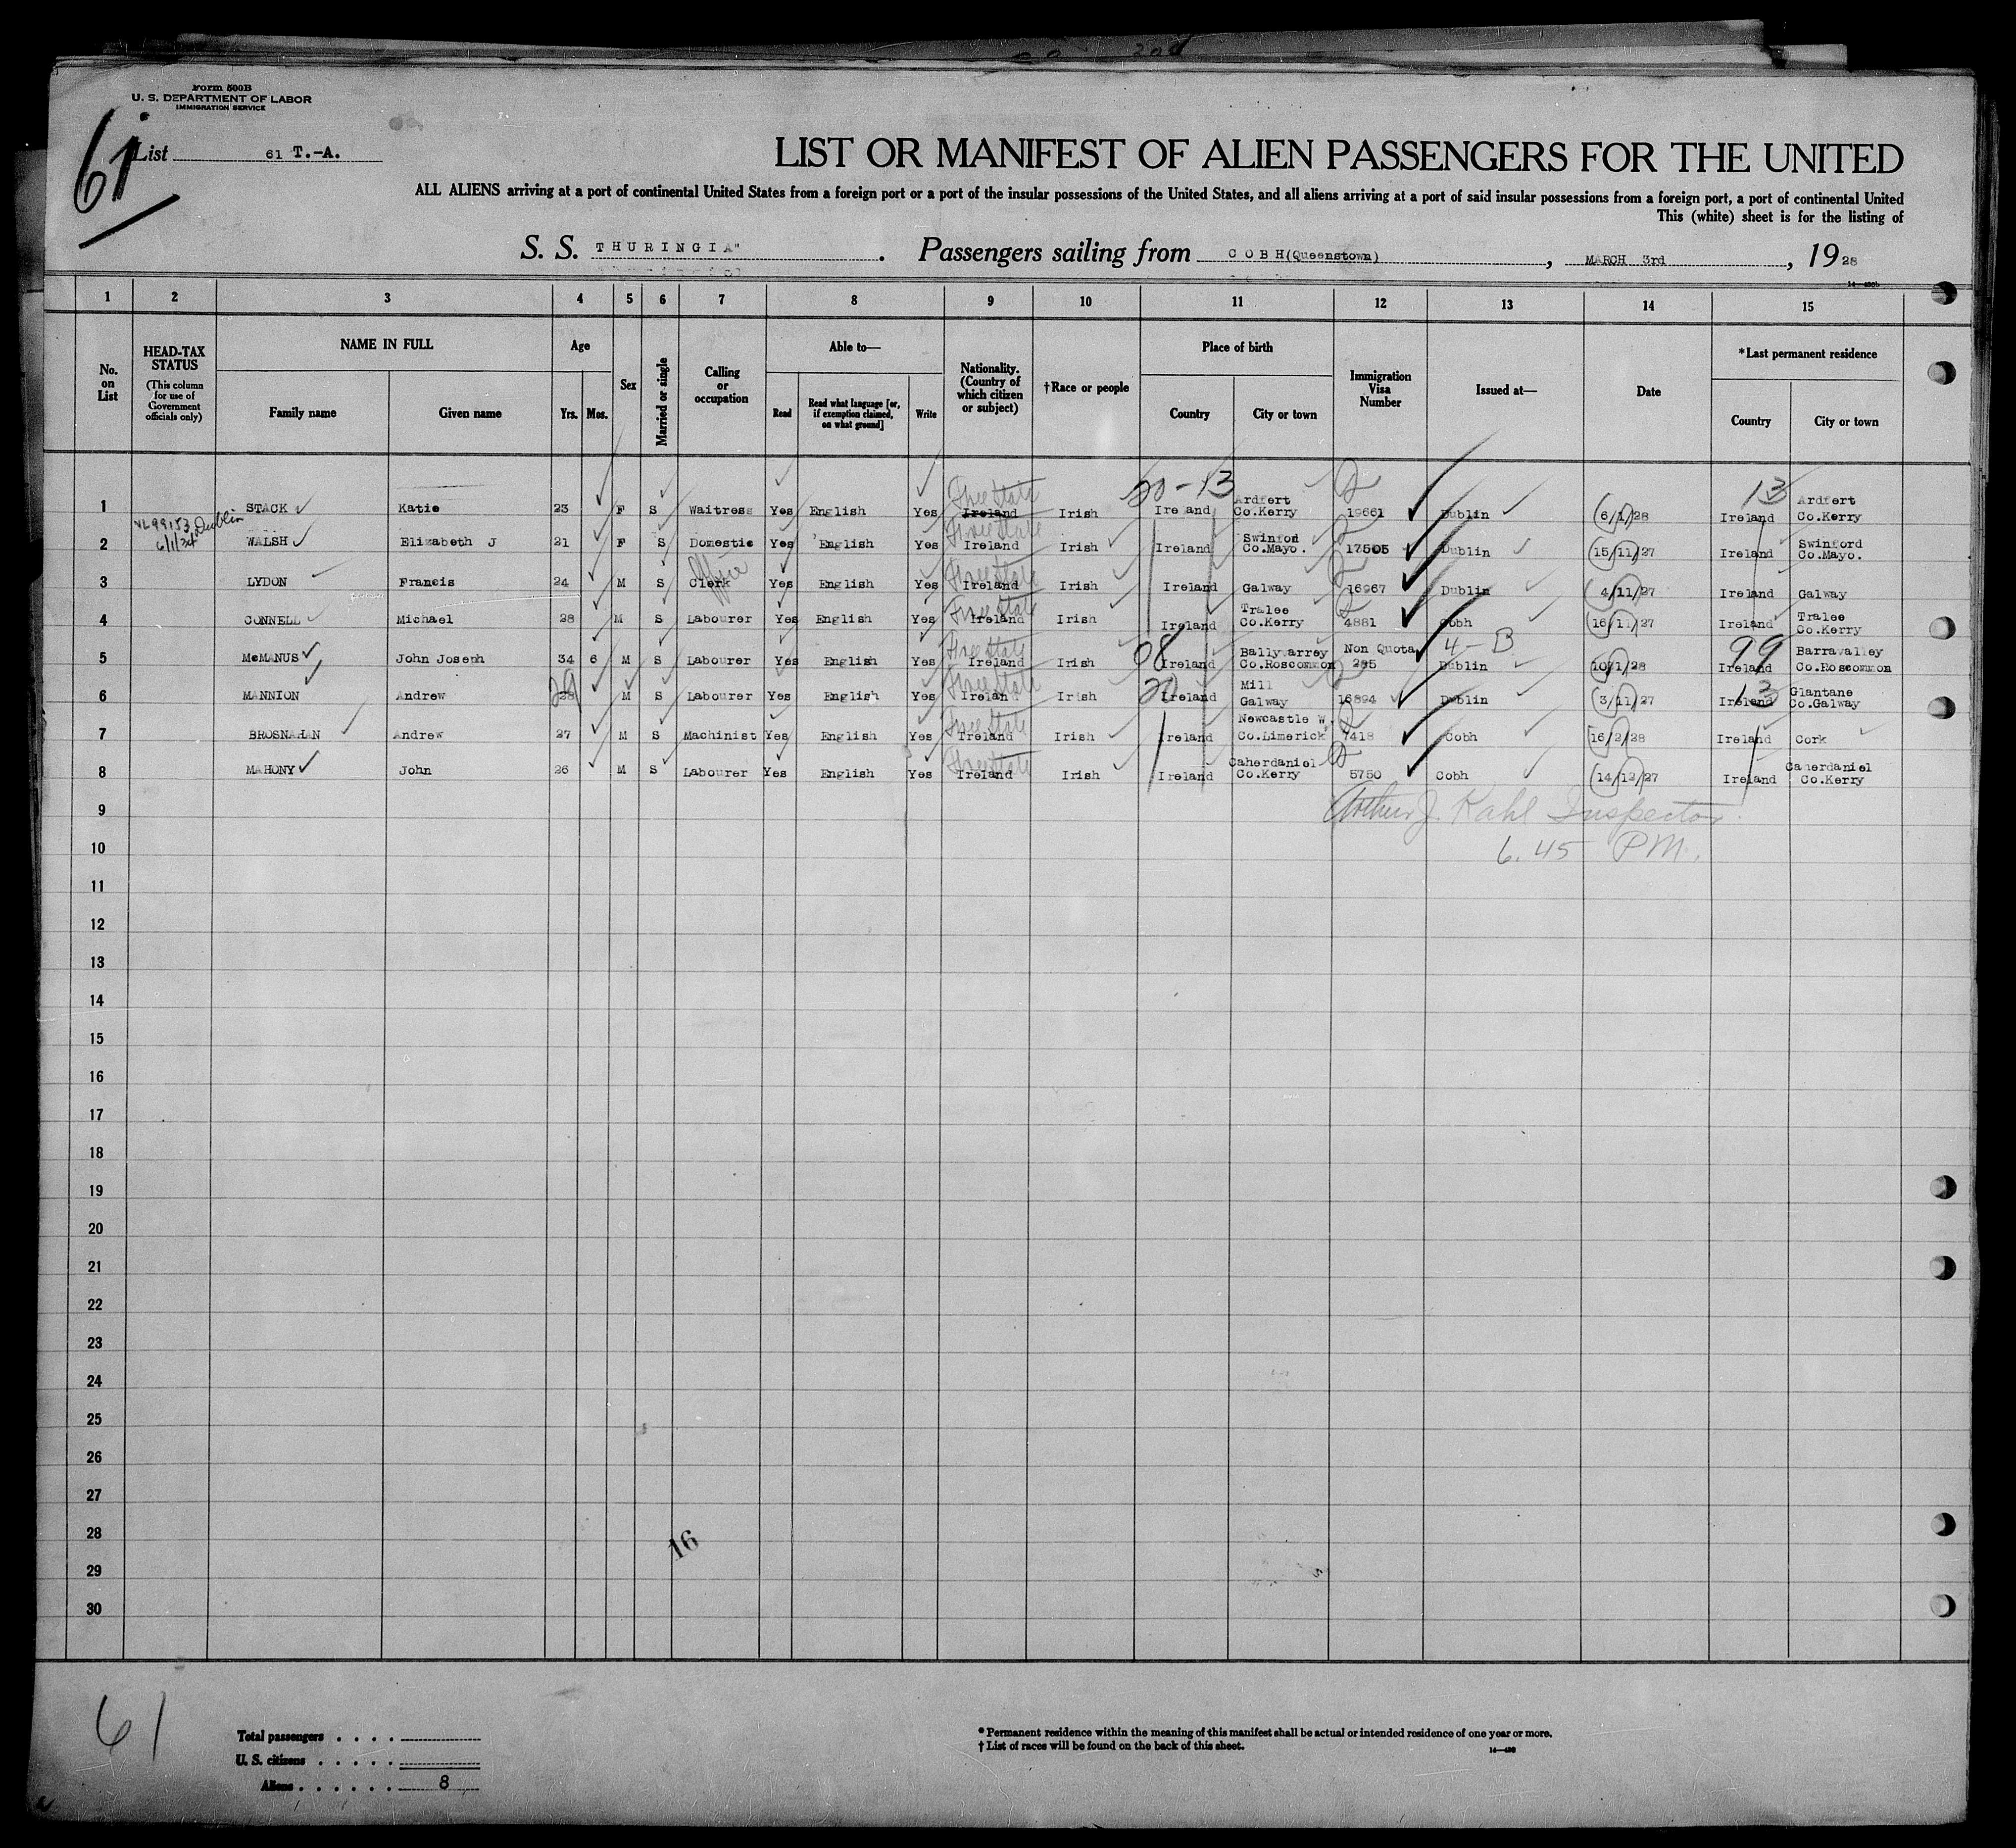 Form 500B
U. S. DEPARTMENT OF LABOR
IMMIGRATION SERVICE
61
List 61 T.-A.
LIST OR MANIFEST OF ALIEN PASSENGERS FOR THE UNITED
ALL ALIENS arriving at a port of continental United States from a foreign port or a port of the insular possessions of the United States, and all aliens arriving at a port of said insular possessions from a foreign port, a port of continental United
This (white) sheet is for the listing of
S. S. THURINGIA" . Passengers sailing from COBH(Queenstown) , MARCH 3rd , 1928
1 2 3 4 5 6 7 8 9 10 11 12 13 14 15
No. on List
HEAD-TAX STATUS
(This column for use of Government officials only)
NAME IN FULL
Family name Given name
Age
Yrs. Mos.
Sex
Married or single
Calling or occupation
Able to—
Read Read what language [or, if exemption claimed, on what ground] Write
Nationality. (Country of which citizen or subject)
†Race or people
Place of birth
Country City or town
Immigration Visa Number
Issued at—
Date
*Last permanent residence
Country City or town
20-13 13
1 STACK Katie 23 F S Waitress Yes English Yes Free State Ireland Irish Ireland Ardfert Co.Kerry 19661 Dublin 6/1/28 Ireland Ardfert Co.Kerry
VL 99153 Dublin
6/1/34
2 WALSH Elizabeth J 21 F S Domestic Yes English Yes Free State Ireland Irish Ireland Swinford Co.Mayo. 17505 Dublin 15/11/27 Ireland Swinford Co.Mayo.
3 LYDON Francis 24 M S Office Clerk Yes English Yes Free State Ireland Irish Ireland Galway 16967 Dublin 4/11/27 Ireland Galway
4 CONNELL Michael 28 M S Labourer Yes English Yes Free State Ireland Irish Ireland Tralee Co.Kerry 4881 Cobh 16/11/27 Ireland Tralee Co.Kerry
5 McMANUS John Joseph 34 6 M S Labourer Yes English Yes Free State Ireland Irish 08 Ireland Ballyvarrey Co.Roscommon Non Quota 285 4-B Dublin 10/1/28 99 Ireland Barravalley Co.Roscommon
6 MANNION Andrew 29 M S Labourer Yes English Yes Free State Irelan Irish 20 Ireland Mill Galway 16894 Dublin 3/11/27 13 Ireland Glantane Co.Galway
7 BROSNAHAN Andrew 27 M S Machinist Yes English Yes Free State Ireland Irish Ireland Newcastle W. Co.Limerick 7418 Cobh 16/2/28 Ireland Cork
8 MAHONY John 26 M S Labourer Yes English Yes Free State Ireland Irish Ireland Caherdaniel Co.Kerry 5750 Cobh 14/12/27 Ireland Caherdaniel Co.Kerry
9 Arthur J. Kahl Inspector.
10 6.45 PM.
11
12
13
14
15
16
17
18
19
20
21
22
23
24
25
26
27
28 16
29
30
61
Total passengers . . . .
U. S. citizens . . . . .
Aliens . . . . . . 8
* Permanent residence within the meaning of this manifest shall be actual or intended residence of one year or more.
† List of races will be found on the back of this sheet.